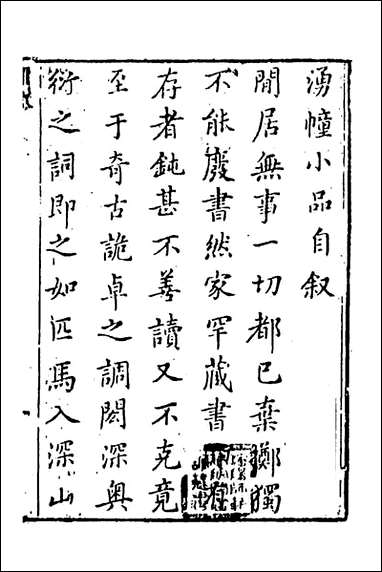 湧幢小品自叙
閒居無事一切都已棄擲獨
不能廢書然家罕藏書
存者鈍甚不善讀又不克竟
至于奇古詭卓之調閎深奧
衍之詞即之如匹馬入深山